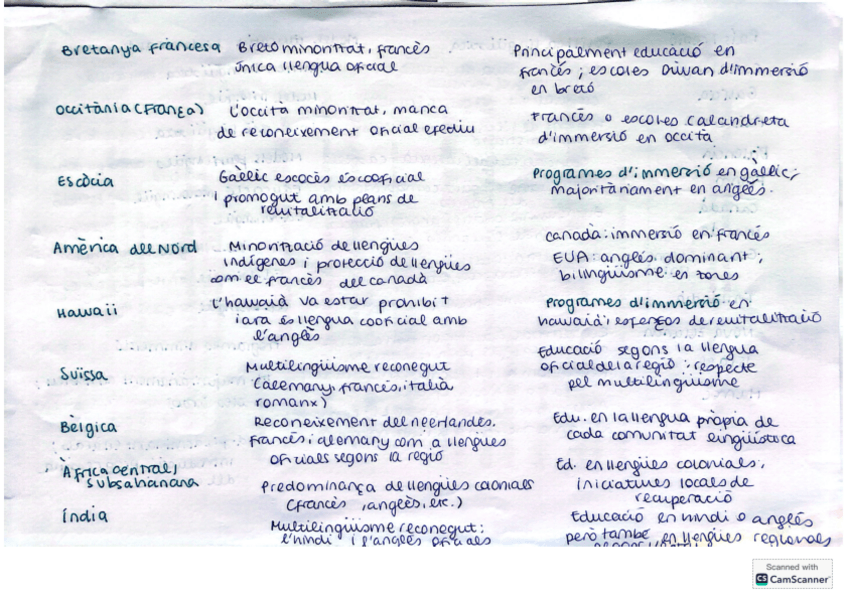 Bretanya francesa
Bretó minoritzat, francès
única llengua oficial
Principalment educació en
francés; escoles Diwan d'immersió
en bretó
Occitània (França)
L'occità minoritzat, manca
de reconeixement oficial efectiu
Francés o escoles calandreta
d'immersió en occità
Escòcia
Gaèlic escocès és cooficial
i promogut amb plans de
revitalització
Programes d'immersió en gaèlic;
majoritàriament en anglès.
Amèrica del Nord
Minorització de llengües
indígenes i protecció de llengües
com el francès del canadà
canadà: immersió en francés
EUA: anglès dominant;
bilingüisme en zones
Hawaii
L'hawaià va estar prohibit
i ara és llengua cooficial amb
l'anglès
Programes d'immersió en
hawaià i esforços de revitalització
Suïssa
Multilingüisme reconegut
(alemany, francès, italià
romanx)
Educació segons la llengua
oficial de la regió; respecte
pel multilingüisme
Bèlgica
Reconeixement del neerlandès.
francès i alemany com a llengües
oficials segons la regió
Edu. en la llengua pròpia de
cada comunitat lingüística
Àfrica central i
subsahariana
Predominança de llengües colonials
(francès, anglès, etc.)
Ed. en llengües colonials;
iniciatives locals de
recuperació
Índia
Multilingüisme reconegut:
l'hindi i l'anglès oficials
Educació en hindi o anglès
però també en llengües regionals
Scanned with
CS CamScanner